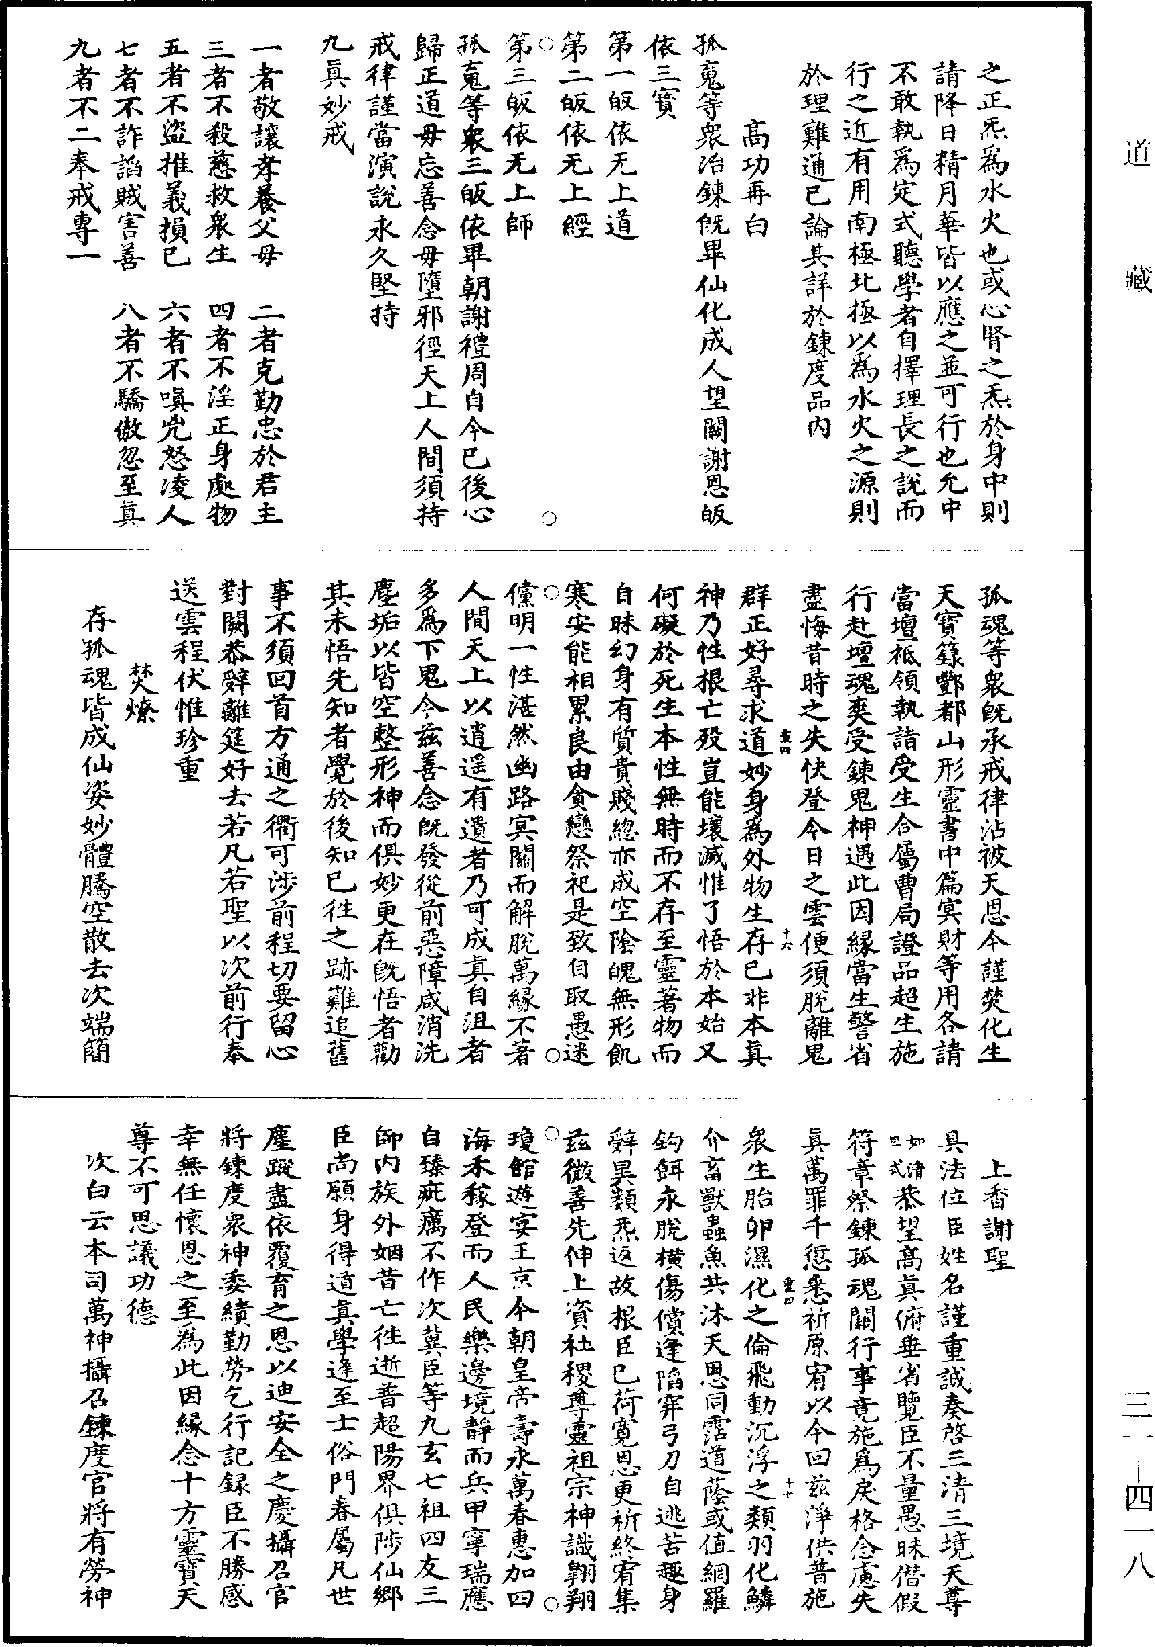 道藏
三一—四一八
之正炁為水火也或心腎之炁於身中則
請降日精月華皆以應之並可行也允中
不敢執為定式聽學者自擇理長之說而
行之近有用南極北極以為水火之源則
於理難通已論其詳於鍊度品內
高功再白
孤䰟等衆冶鍊旣畢仙化成人望闕謝恩皈
依三寳
第一皈依无上道
第二皈依无上經
第三皈依无上師
孤䰟等衆三皈依畢朝謝禮周自今已後心
歸正道毋忘善念毋墮邪徑天上人間須持
戒律謹當演說永久堅持
九眞妙戒
一者敬讓孝養父母 二者克勤忠於君主
三者不殺慈救衆生 四者不淫正身處物
五者不盜推義損己 六者不嗔兇怒凌人
七者不詐諂賊害善 八者不驕傲忽至眞
九者不二奉戒專一
孤魂等衆旣承戒律沾被天恩今謹焚化生
天寳籙酆都山形靈書中篇冥財等用各請
當壇祗領執詣受生合屬曹局證品超生施
行赴壇魂爽受鍊鬼神遇此因緣當生警省
盡悔昔時之失伏登今日之雲便須脫離鬼
群正好尋求道妙身為外物生存已非本眞
神乃性根亡歿豈能壞滅惟了悟於本始又
何礙於死生本性無時而不存至靈著物而
自昧幻身有質貴賤緫亦成空陰魄無形飢
寒安能相累良由貪戀祭祀是致自取愚迷
儻明一性湛然幽路冥關而解脫萬緣不著
人間天上以逍遥有遺者乃可成真自沮者
多為下鬼今茲善念旣發從前惡障咸消洗
塵垢以皆空整形神而俱妙更在旣悟者勸
其未悟先知者覺於後知已往之跡難追舊
事不須回首方通之衢可涉前程切要留心
對闕恭辭離筵好去若凡若聖以次前行奉
送雲程伏惟珍重
焚燎
存孤魂皆成仙姿妙體騰空散去次端簡
上香謝聖
具法位臣姓名謹重誠奏啓三清三境天尊
如請聖式恭望高真俯垂省覽臣不量愚昧僣假
符章祭鍊孤魂關行事竟施為戾格念慮失
真萬罪千愆悉祈原宥以今回茲淨供普施
衆生胎卵濕化之倫飛動沉浮之類羽化鱗
介畜獸蟲魚共沐天恩同霑道蔭或值網羅
鈎餌永脫橫傷儻逢陷穽弓刀自逃苦趣身
辭異類炁返故根臣已荷寬恩更祈終宥集
茲微善先伸上資社稷尊靈祖宗神識翺翔
瓊館遊宴玉京今朝皇帝壽永萬春惠加四
海禾稼登而人民樂邊境靜而兵甲寧瑞應
自臻疵癘不作次冀臣等九玄七祖四友三
師內族外姻昔亡往逝普超陽界俱陟仙鄉
臣尚願身得道真學達至士俗門眷屬凡世
塵蹤盡依覆育之恩以迪安全之慶攝召官
將鍊度衆神委績勤勞乞行記録臣不勝感
幸無任懷恩之至為此因緣念十方靈寶天
尊不可思議功德
次白云本司萬神攝召鍊度官將有勞神